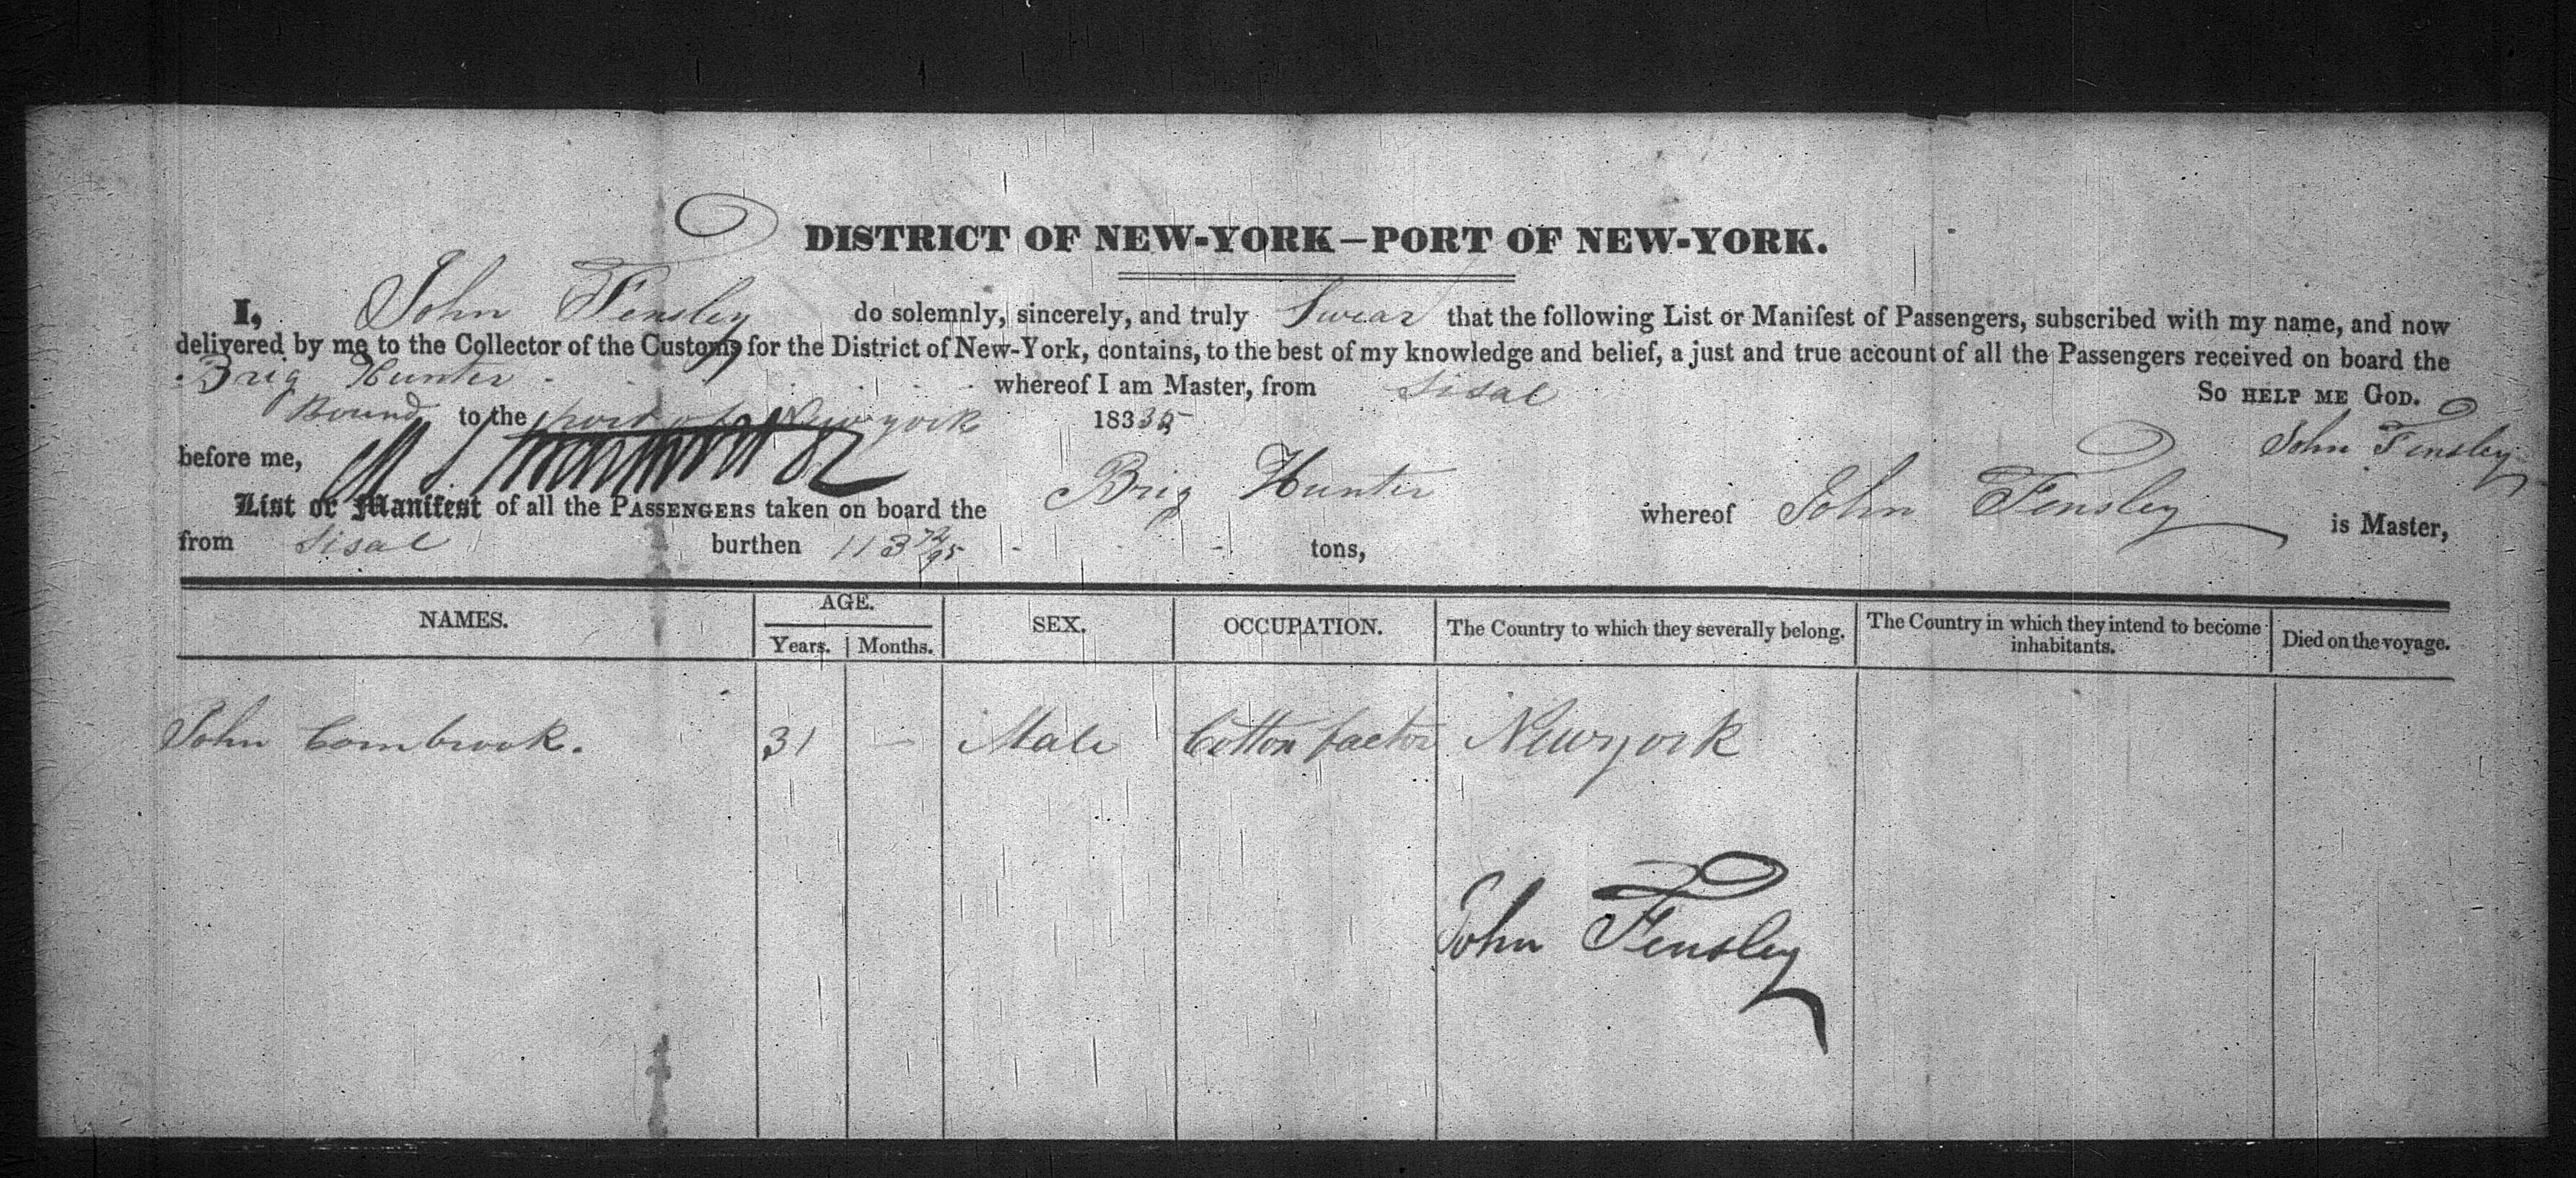 DISTRICT OF NEW-YORK—PORT OF NEW-YORK.
I, John Tensley do solemnly, sincerely, and truly Swear that the following List or Manifest of Passengers, subscribed with my name, and now
delivered by me to the Collector of the Customs for the District of New-York, contains, to the best of my knowledge and belief, a just and true account of all the Passengers received on board the
Brig Hunter whereof I am Master, from Sisal So HELP ME GOD.
Bound to the port of New york 183 John Tensley
before me,
List or Manifest of all the PASSENGERS taken on board the Brig Hunter whereof John Tensley is Master,
from Sisal burthen 113 72/95 tons,
NAMES. AGE. SEX. OCCUPATION. The Country to which they severally belong. The Country in which they intend to become inhabitants. Died on the voyage.
Years. Months.
John Cornbrook. 31 — Male Cotton factor Newyork
John Tensley